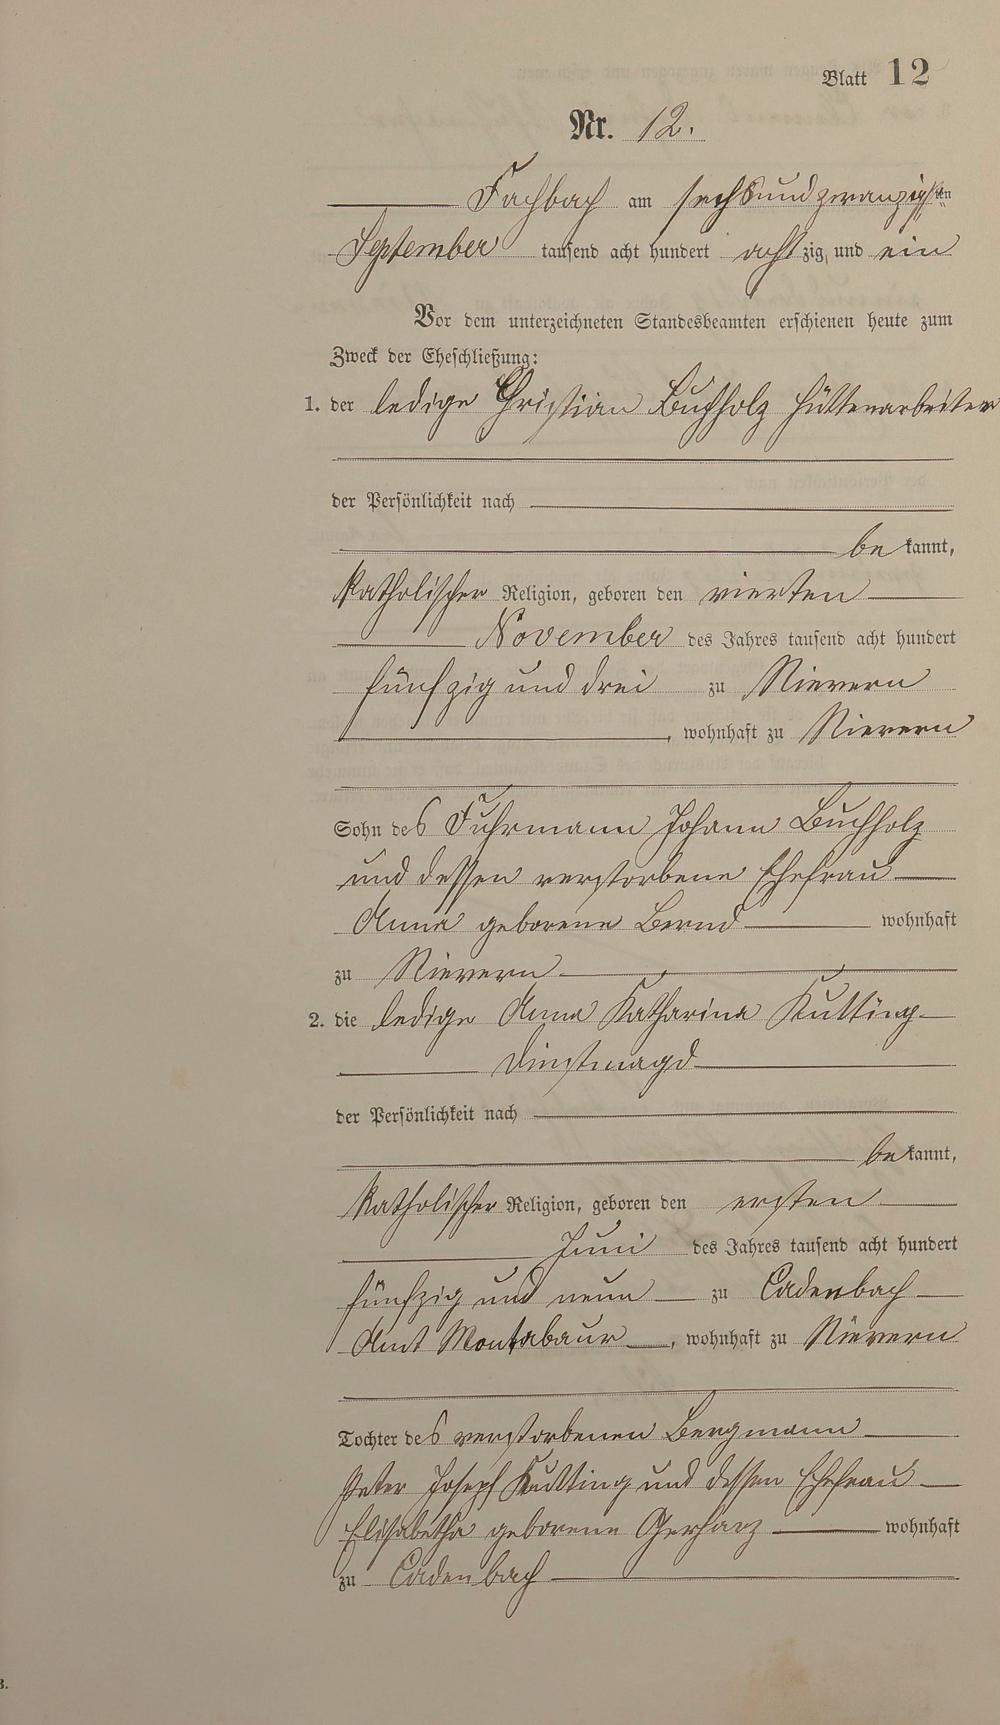 Blatt 12
Nr. 12.
Fachbach am sechsundzwanzigsten
September tausend acht hundert achtzig und ein
Vor dem unterzeichneten Standesbeamten erschienen heute zum
Zweck der Eheschließung:
1. der ledige Christian Buchholz Hüttenarbeiter
der Persönlichkeit nach
bekannt,
katholischer Religion, geboren den vierten
November des Jahres tausend acht hundert
fünfzig und drei zu Nievern
, wohnhaft zu Nievern
Sohn des Fuhrmann Johann Buchholz
und dessen verstorbene Ehefrau
Anna geborene Bernd wohnhaft
zu Nievern
2. die ledige Anna Katharina Kutting
Dinstmagd
der Persönlichkeit nach
bekannt,
katholischer Religion, geboren den ersten
Juni des Jahres tausend acht hundert
fünfzig und neun zu Cadenbach
Amt Montabaur, wohnhaft zu Nievern
Tochter des verstorbenen Bergmann
Peter Joseph Kutting und dessen Ehefrau
Elisabetha geborene Gerharz wohnhaft
zu Cadenbach
3.